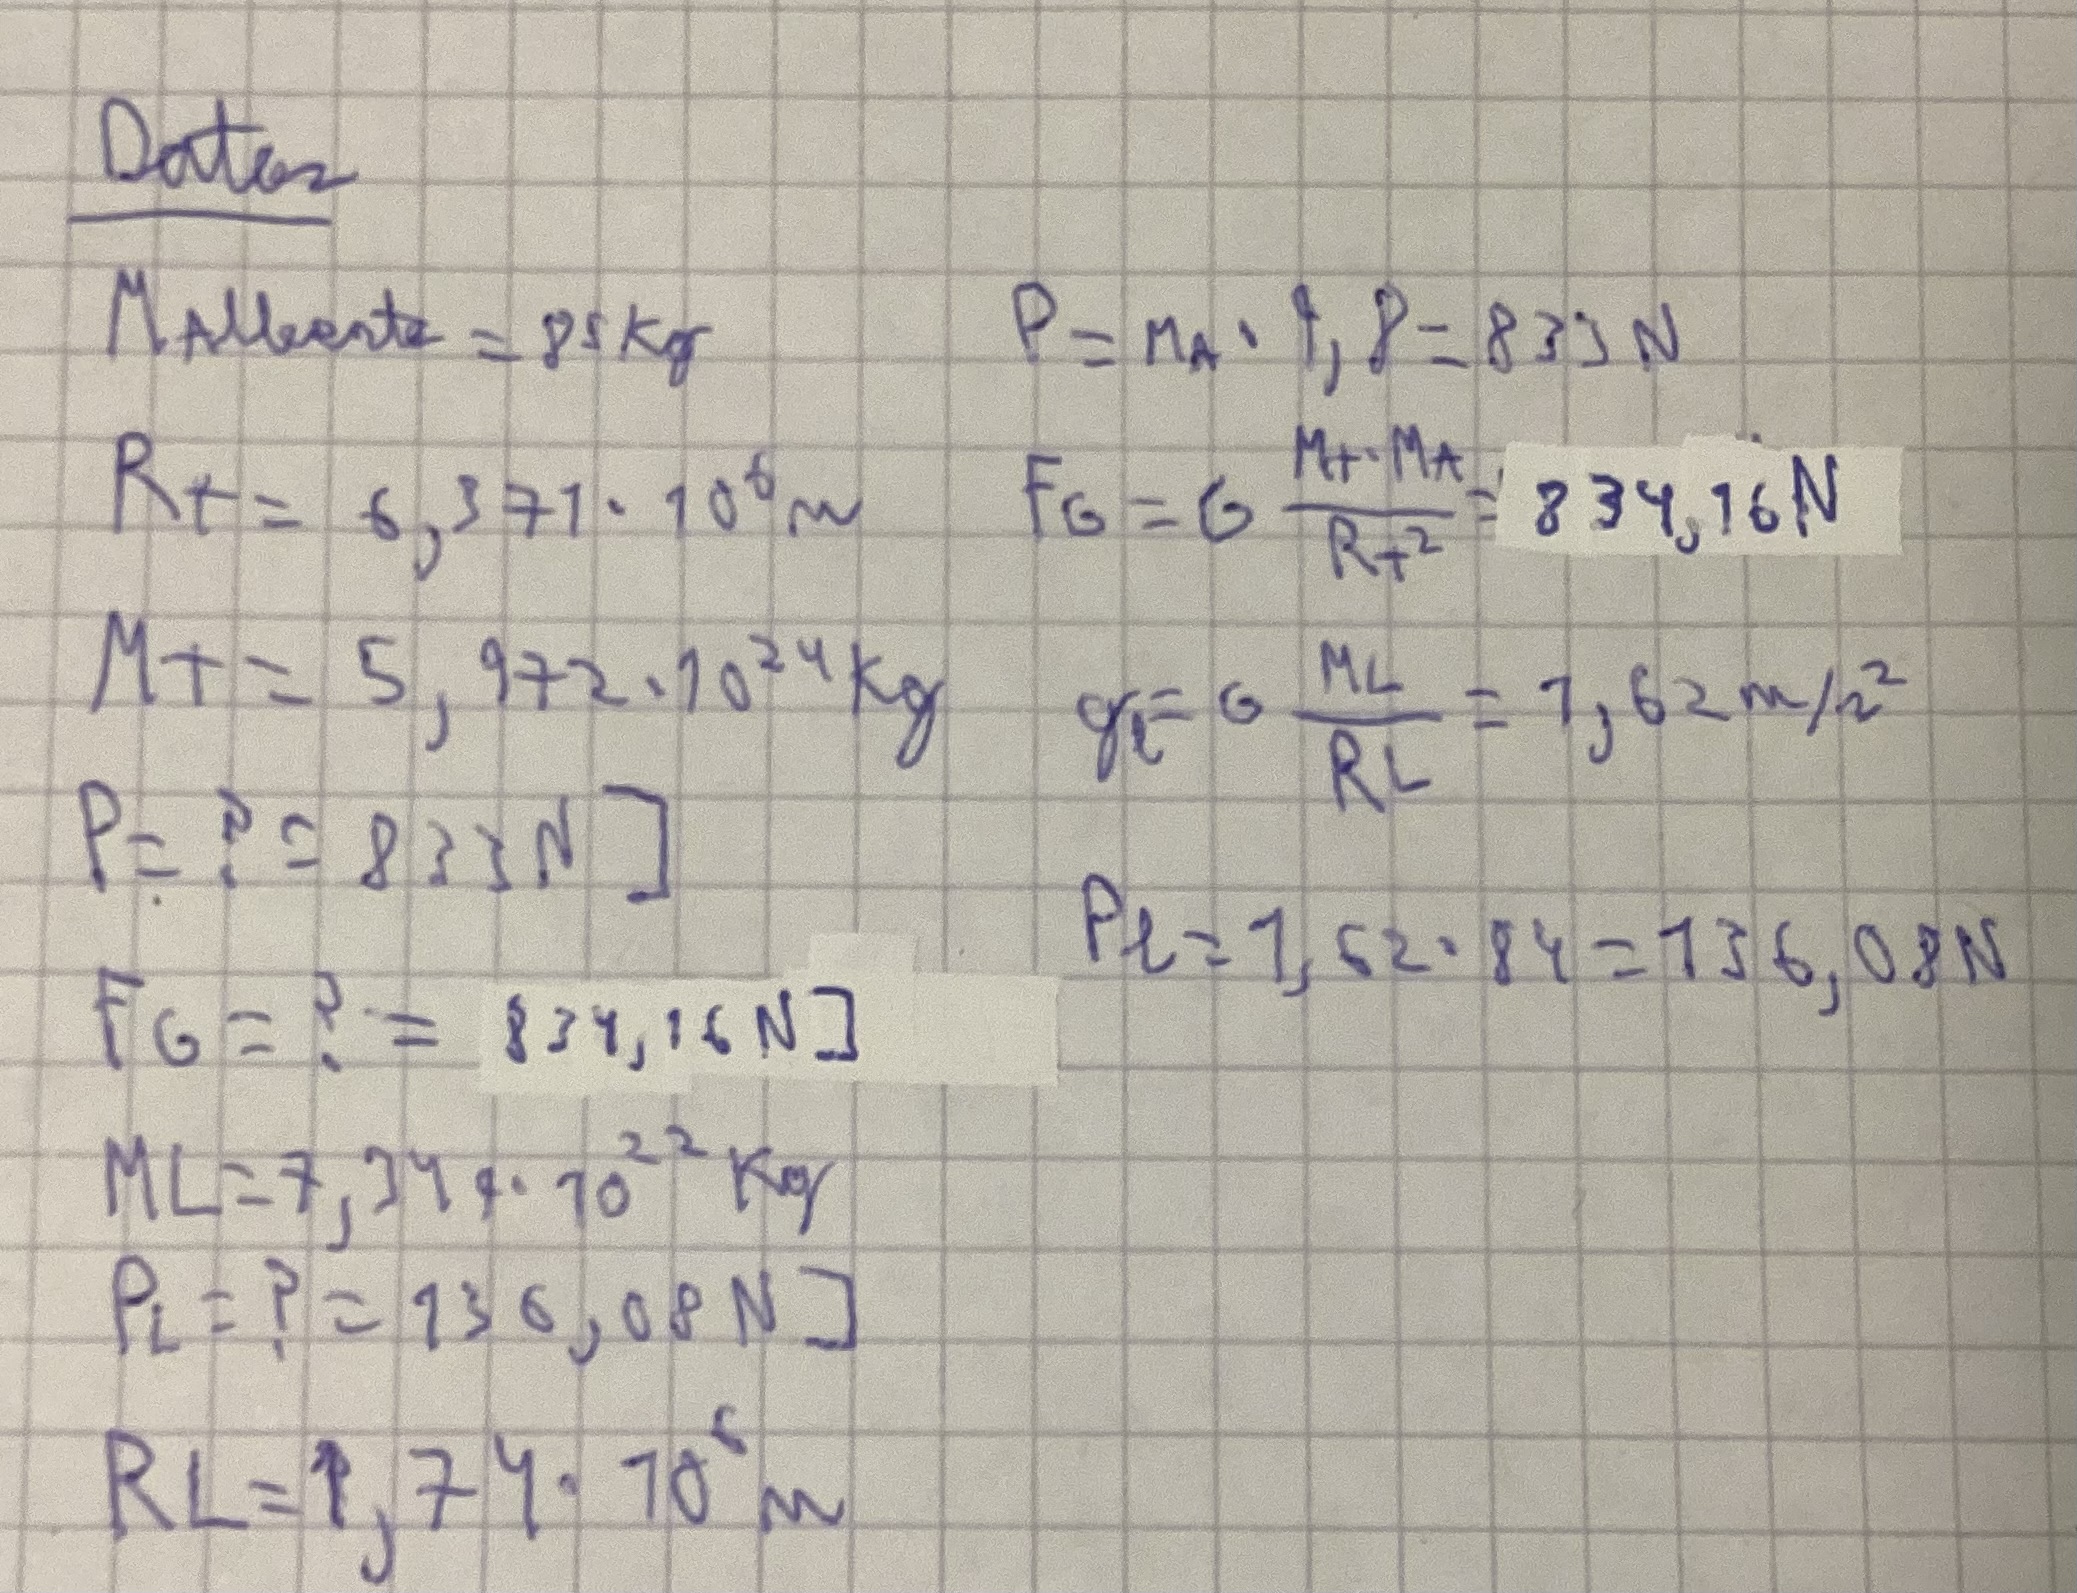 Datos
M Alberto = 85 Kg
Rt = 6,371 · 10⁶ m
Mt = 5,972 · 10²⁴ Kg
P = ? = 833 N ]
FG = ? = 834,16 N ]
ML = 7,349 · 10²² Kg
PL = ? = 136,08 N ]
RL = 1,74 · 10⁶ m
P = MA · 9,8 = 833 N
FG = G Mt · MA / Rt² = 834,16 N
gL = G ML / RL = 1,62 m/s²
Pl = 1,62 · 84 = 136,08 N